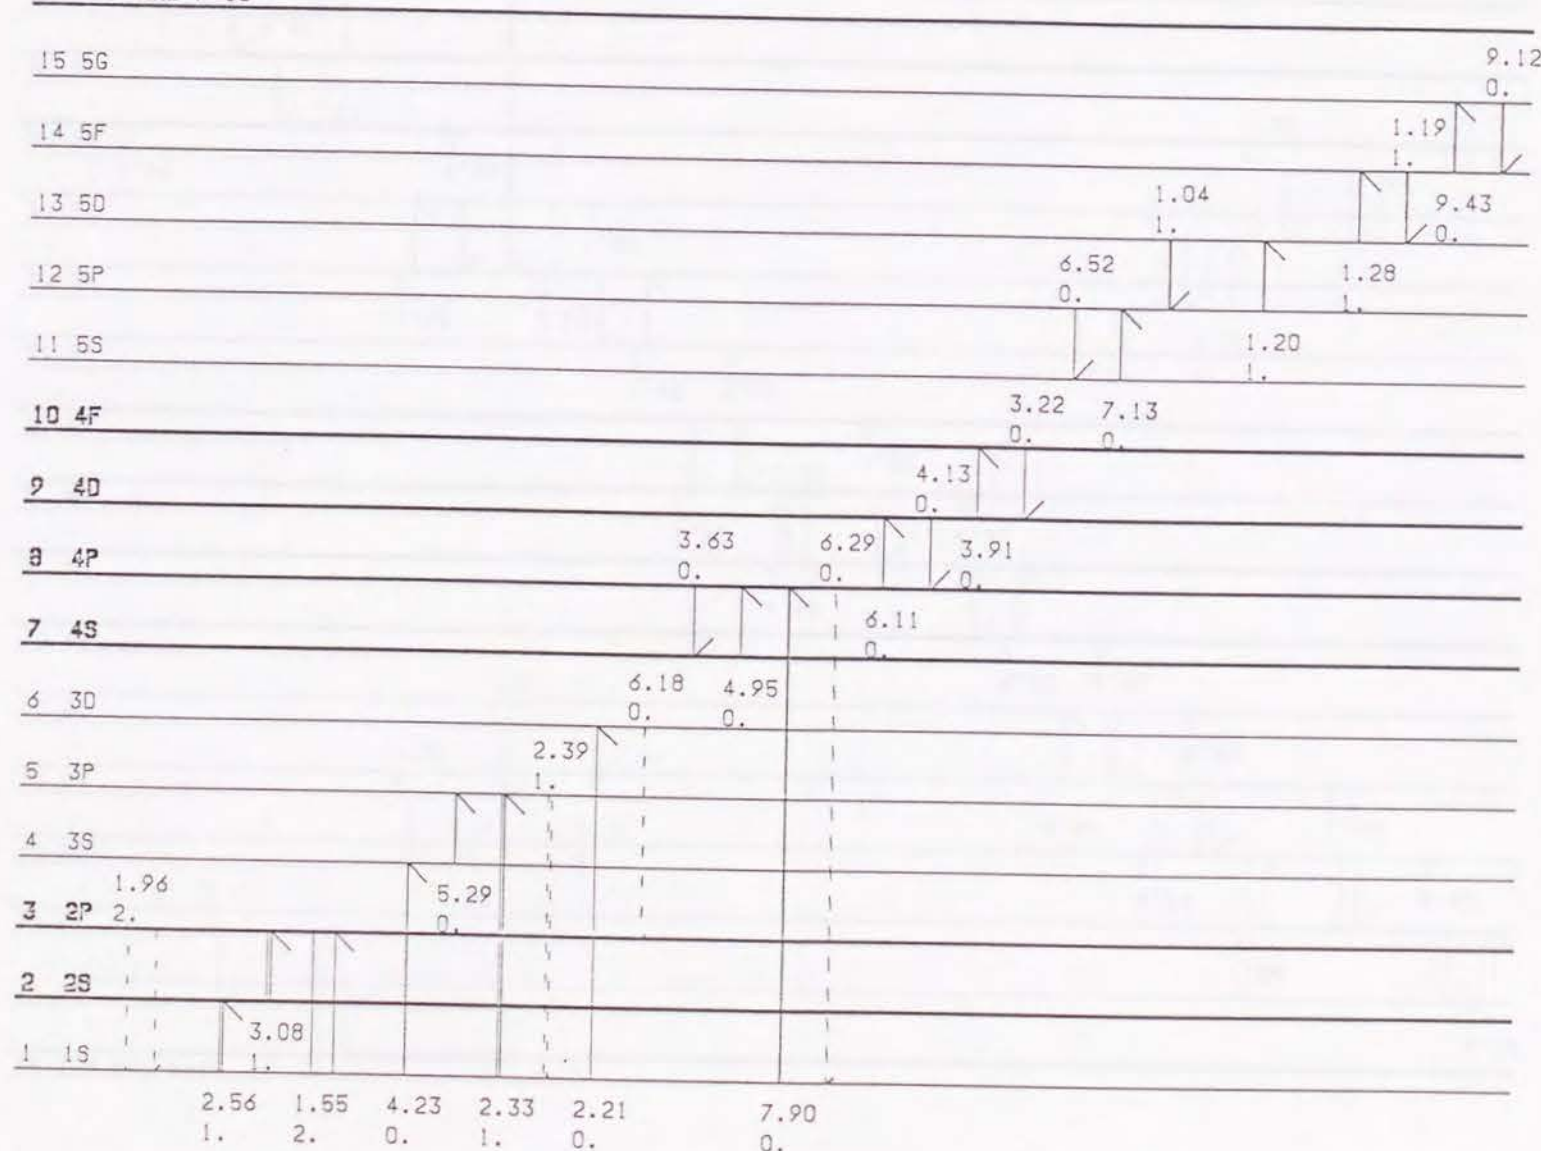 15 5G
9.12
0.
14 5F
1.19
1.
13 5D
1.04
1.
9.43
0.
12 5P
6.52
0.
1.28
1.
11 5S
1.20
1.
10 4F
3.22 7.13
0. 0.
9 4D
4.13
0.
8 4P
3.63 6.29 3.91
0. 0. 0.
7 4S
6.11
0.
6 3D
6.18 4.95
0. 0.
5 3P
2.39
1.
4 3S
1.96
2.
5.29
0.
3 2P
2 2S
3.08
1.
1 1S
2.56 1.55 4.23 2.33 2.21 7.90
1. 2. 0. 1. 0. 0.